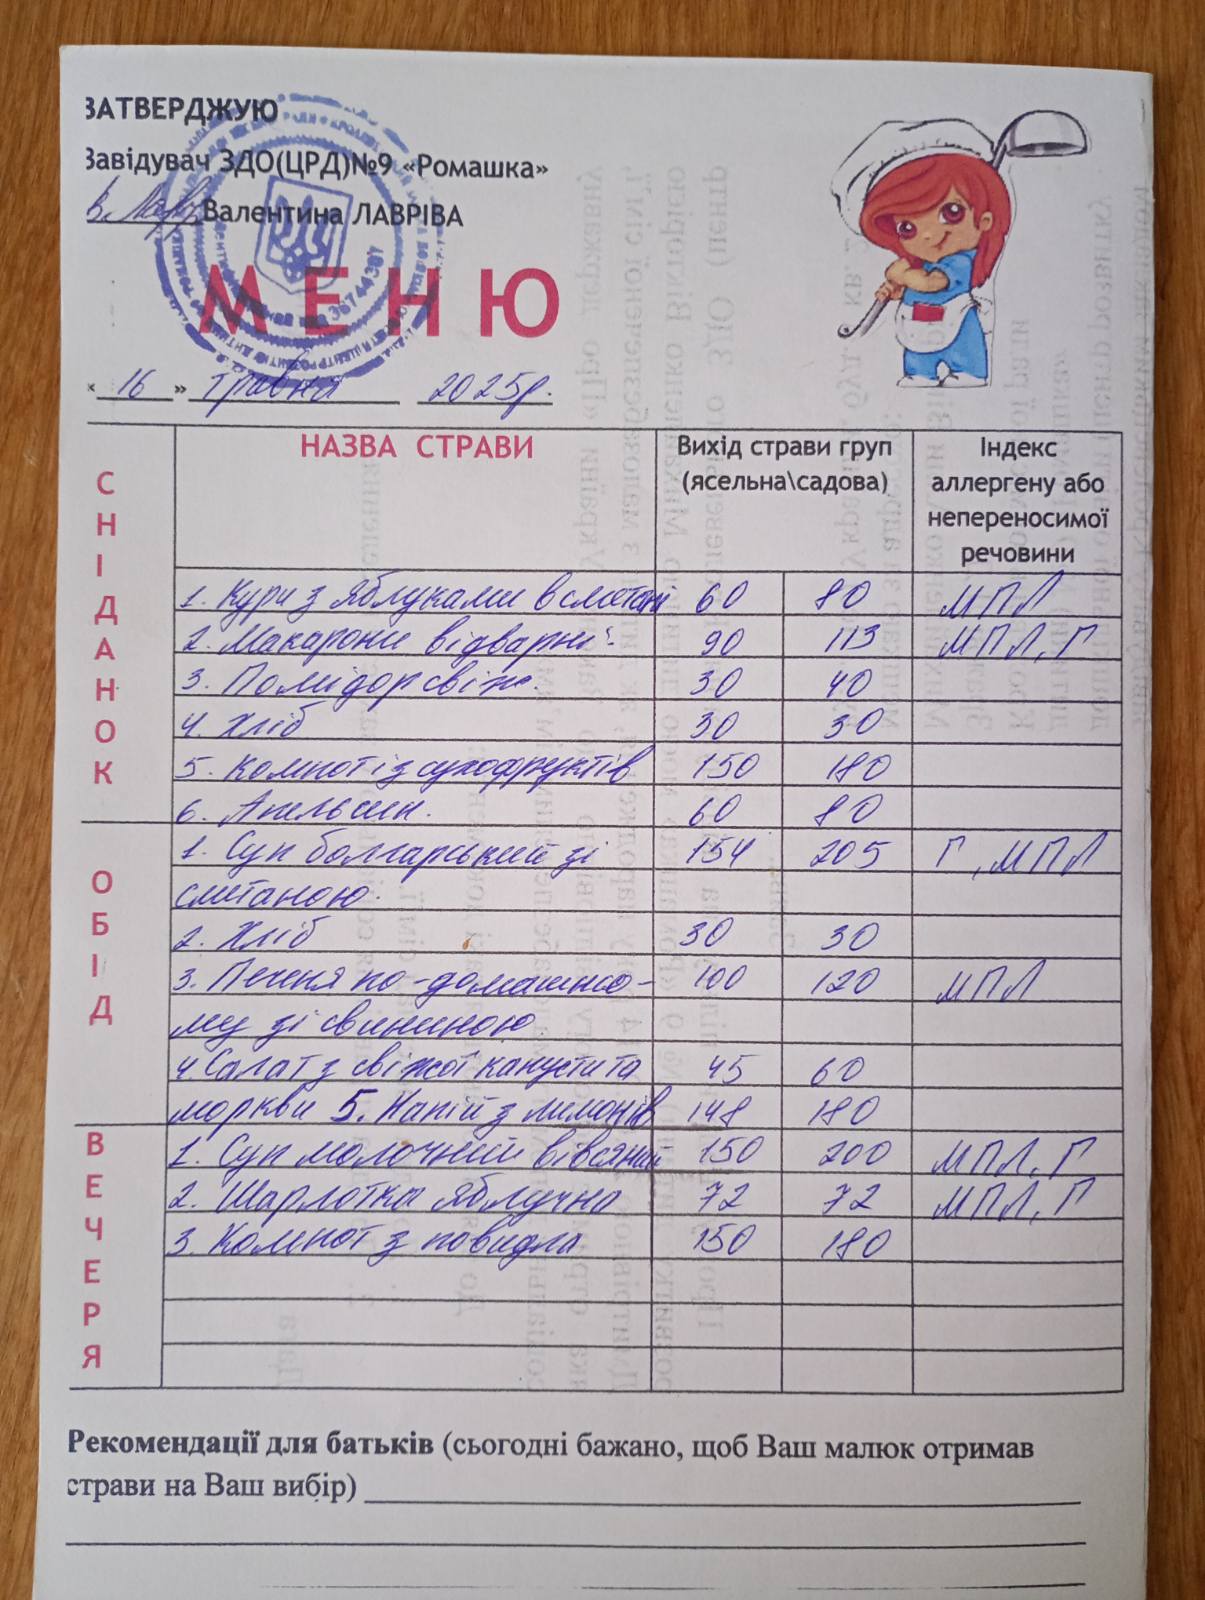 ЗАТВЕРДЖУЮ
Завідувач ЗДО(ЦРД)№9 «Ромашка»
Валентина ЛАВРІВА
МЕНЮ
« 16 » травня 2025р.
НАЗВА СТРАВИ Вихід страви груп (ясельна\садова) Індекс аллергену або непереносимої речовини
СНІДАНОК
1. Кури з яблуками в сметані 60 80 МПЛ
2. Макарони відварні 90 113 МПЛ, Г
3. Помідор свіж. 30 40
4. Хліб 30 30
5. Компот із сухофруктів 150 180
6. Апельсин. 60 80
ОБІД
1. Суп болгарський зі 154 205 Г, МПЛ
сметаною.
2. Хліб 30 30
3. Печеня по-домашньо- 100 120 МПЛ
му зі свининою.
4. Салат з свіжої капусти та 45 60
моркви 5. Напій з лимонів 148 180
ВЕЧЕРЯ
1. Суп молочний вівсяний 150 200 МПЛ, Г
2. Шарлотка яблучна 72 72 МПЛ, Г
3. Компот з повидла 150 180
Рекомендації для батьків (сьогодні бажано, щоб Ваш малюк отримав
страви на Ваш вибір)